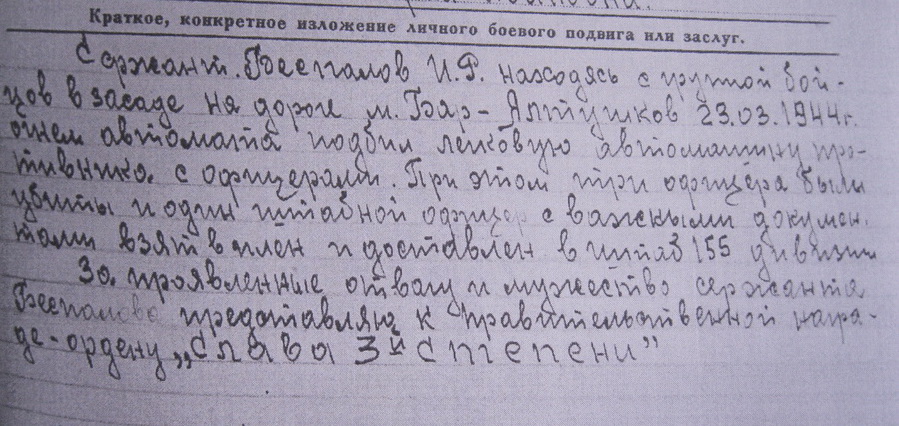 Краткое, конкретное изложение личного боевого подвига или заслуг.
Сержант. Беспалов И.Ф. находясь с группой бой-
цов в засаде на дороге м. Бар-Ялтушков 23.03.1944г.
огнем автомата подбил легковую автомашину про-
тивника с офицерами. При этом три офицера были
убиты и один штабной офицер с важными докумен-
тами взят в плен и доставлен в штаб 155 дивизии
За проявленные отвагу и мужество сержанта
Беспалова представляю к правительственной награ-
де-ордену „Слава 3й степени”